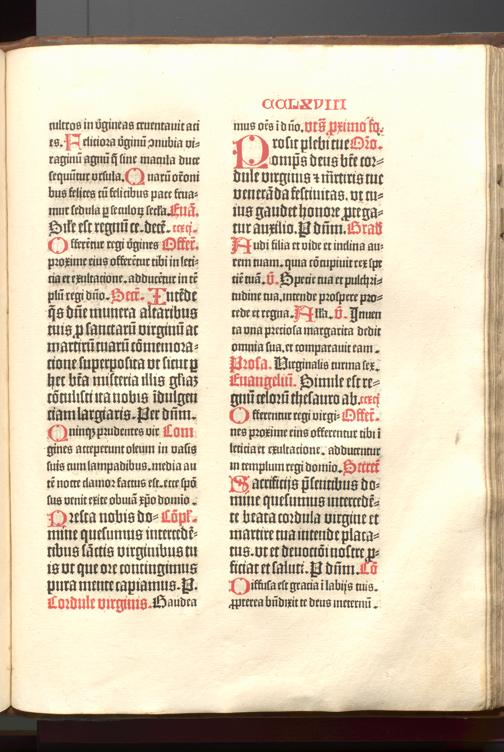 CCLXVIII
cultros in v̄gineas cruentauit aci
es. Feliciora v̄ginū ↄnubia vi-
raginū agnū q̄ sine macula duce
sequūtur vrsula. Quarū oōoni
bus felices cū felicibus pace frua-
mur sedula ꝑ seculoꝝ secla. Euā.
Sīle est regnū ce. dece. cxcj.
Offerētur regi v̄gines Offer̄.
proxime eius offerētur tibi in leti-
cia et exultacione. adducētur in tē
plū regi dn̄o. Secr̄. Intēde
q̄s dn̄e munera altaribus
tuis ꝓ sanctarū virginū ac
martirū tuarū cōmemora-
cione superposita vt sicut ꝑ
hec btā misteria illis gl̄iaꝫ
cōtulisti ita nobis īdulgen
ciam largiaris. Per dn̄m.
Quinqꝫ prudentes vir Com
gines acceperunt oleum in vasis
suis cum lampadibus. media au
tē nocte clamor factus est. ecce spō
sus venit exite obuiā xp̄o domino.
Presta nobis do- Cōpl̄.
mine quesumus intercedē-
tibus sāctis virginibus tu
is vt que ore contingimus
pura mente capiamus. P.
Cordule virginis. Gaudea
mus oēs ī dn̄o. vers̄ ꝓximo fo.
Prosit plebi tue Oro.
omp̄s deus btē cor-
dule virginis ⁊ mr̄tiris tue
venerāda festiuitas. vt cu-
ius gaudet honore ꝓtega-
tur auxilio. P dn̄m. Grad̄
Audi filia et vide et inclina au-
rem tuam. quia cōcupiuit rex spe
ciē tuā. v̄. Specie tua et pulchri-
tudine tua. intende prospere pro-
cede et regna. Alla. v̄. Inuen
ta vna preciosa margarita dedit
omnia sua. et comparauit eam.
Prosa. Virginalis turma sex.
Euangeliū. Simile est re-
gnū celorū thesauro ab. cxcj
Offerentur regi virgi- Offer̄.
nes proxime eius offerentur tibi ī
leticia et exultacione. adducentur
in templum regi domino. Secret̄
Sacrificijs p̄sentibus do-
mine quesumus intercedē-
te beata cordula virgine et
martire tua intende placa-
tus. vt et deuocōi nostre ꝓ-
ficiat et saluti. P dn̄m. Cō
Diffusa est gracia ī labijs tuis.
ꝓpterea bn̄dixit te deus ineternū.